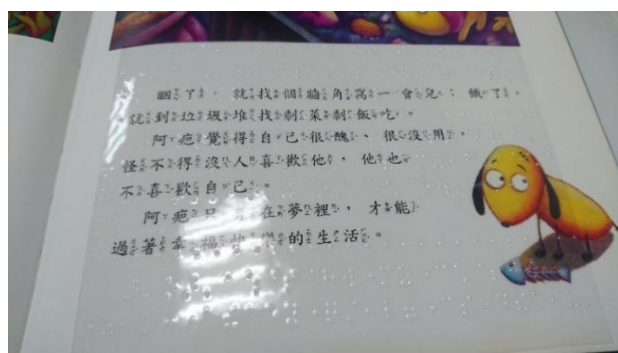 睏了,就找個牆角窩一會兒;餓了,
就到垃圾堆找剩菜剩飯吃。
阿疤覺得自己很醜、很沒用,
怪不得沒人喜歡他,他也
不喜歡自己。
阿疤只在夢裡,才能
過著幸福快樂的生活。